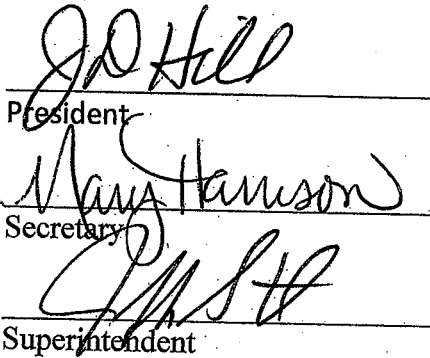 JD Hill
President
Mary Harrison
Secretary
Superintendent